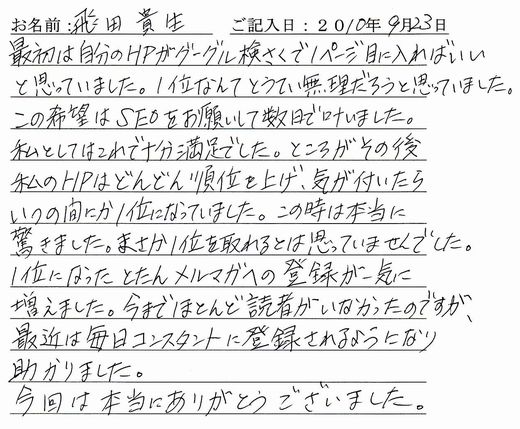 お名前:飛田 貴生 ご記入日:2010年9月23日
最初は自分のHPがグーグル検さくで1ページ目に入ればいい
と思っていました。1位なんてとうてい無理だろうと思っていました。
この希望はSEOをお願いして数日で叶いました。
私としてはこれで十分満足でした。ところがその後
私のHPはどんどん順位を上げ、気が付いたら
いつの間にか1位になっていました。この時は本当に
驚きました。まさか1位を取れるとは思っていませんでした。
1位になったとたんメルマガへの登録が一気に
増えました。今までほとんど読者がいなかったのですが、
最近は毎日コンスタントに登録されるようになり
助かりました。
今回は本当にありがとうございました。